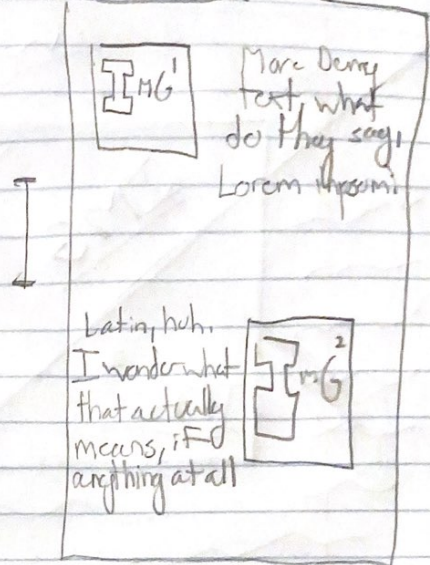 IMG 1
More Demy
text, what
do they say,
Lorem Ihpsum.
Latin, huh.
I wonder what
that actually
means, if
anything at all
IMG 2